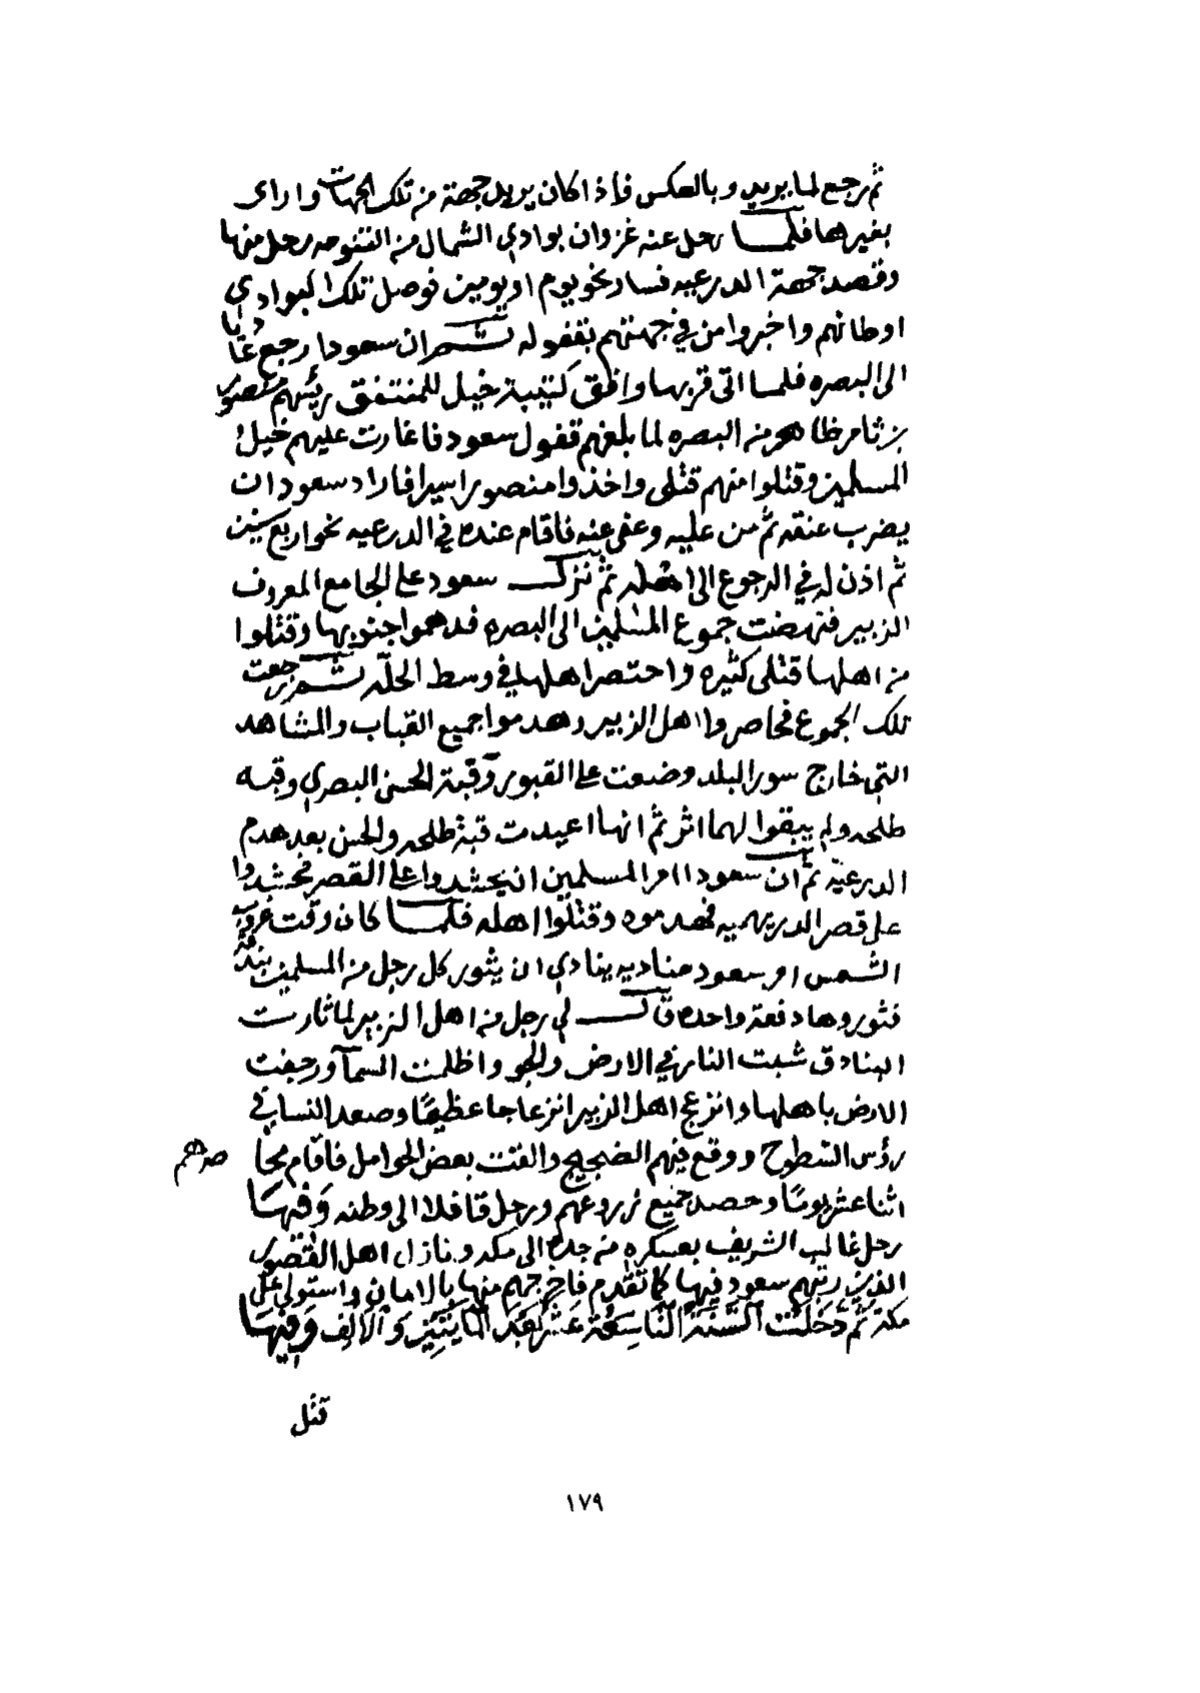 ثم رجع لما يريد وبالعكس فاذا كان يريد جهة من تلك الجهات وارا ى
بغيرها فلما رحل عنه غزوان بوادي الشمال من التنومه رحل منها
وقصد جهة الدرعيه فسار نحو يوم او يومين فوصل تلك البوادي
اوطانهم واخبروا من في جهتهم بقفوله ثم ان سعودا رجع عاديا
الى البصره فلما اتى قربها وافق كتيبة خيل للمنتفق رئيسهم منصور
بن ثامر ظاهر من البصره لما بلغهم قفول سعود فاغارت عليهم خيل
المسلمين وقتلوا منهم قتلى واخذوا منصورا اسيرا فاراد سعود ان
يضرب عنقه ثم من عليه وعفى عنه فاقام عنده في الدرعيه نحو اربع سنين
ثم اذن له في الرجوع الى اهله ثم نزل سعود على الجامع المعروف
الزبير فنهضت جموع المسلمين الى البصره فدهموا جنوبها وقتلوا
من اهلها قتلى كثيره واحتصر اهلها في وسط الحلّه ثم رجعت
تلك الجموع فحاصروا اهل الزبير وهدموا جميع القباب والمشاهد
التي خارج سور البلد وضعت على القبور وقبة الحسن البصري وقبه
طلحه ولم يبقوا لهما اثر ثم انها اعيدت قبة طلحه والحسن بعد هدم
الدرعية ثم ان سعودا امر المسلمين ان يحشدوا على القصر فحشدوا
على قصر الدريهميه فهدموه وقتلوا اهله فلما كان وقت غروب
الشمس امر سعود مناديه ينادي ان يثور كل رجل من المسلمين بندقه
فثوروها دفعة واحده قال لي رجل من اهل الزبير لما ثارت
البنادق شبت النار في الارض والجو واظلمت السمآ ورجفت
الارض باهلها وانزعج اهل الزبير انزعاجا عظيمًا وصعد النسا في
رؤس السطوح ووقع فيهم الضجيج والقت بعض الحوامل فاقام محا
صرهم
اثنا عشر يومًا وحصد جميع زروعهم ورحل قافلا الى وطنه وَفيهَا
رحل غالب الشريف بعسكره من جده الى مكه ونازل اهل القصور
الذين رتبهم سعود فيها كما تقدم فاخرجهم منها بالامان واستولى على
مكة ثُمَّ دَخَلَتْ السَّنَةُ التَّاسِعَةَ عَشَر بَعدَ المَايَتَيْنِ وَالاَلِف وَفِيهَا
قتل
١٧٩